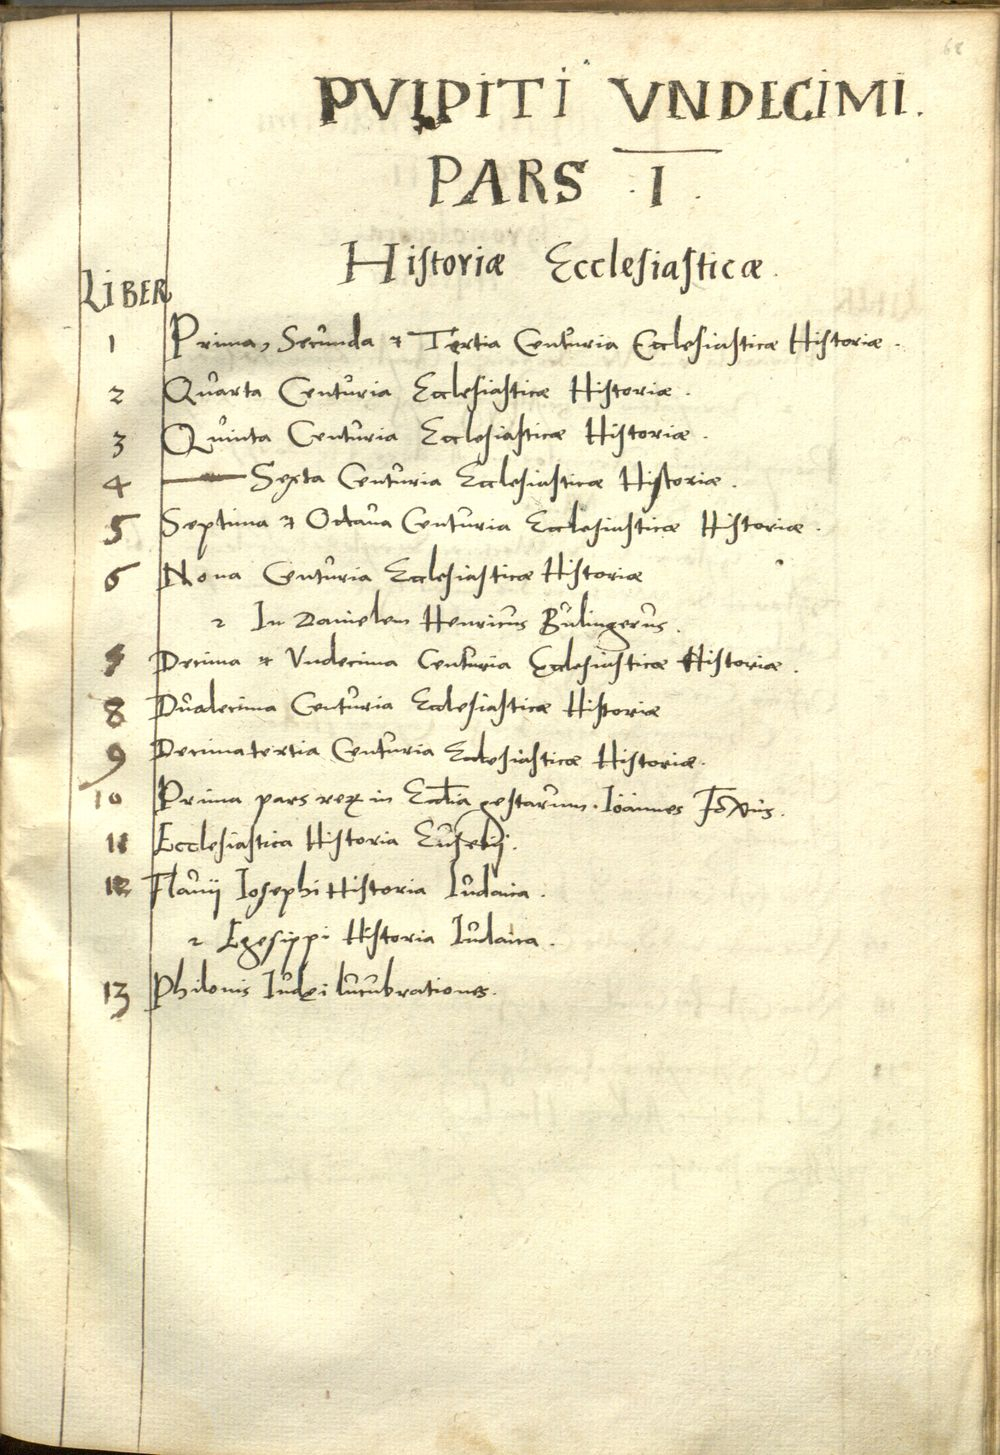 68
PVLPITI VNDECIMI.
PARS I.
Historiæ Ecclesiasticæ.
LIBER
1 Prima, Secunda & Tertia Centuria Ecclesiasticæ Historiæ.
2 Quarta Centuria Ecclesiasticæ Historiæ.
3 Quinta Centuria Ecclesiasticæ Historiæ.
4 Sexta Centuria Ecclesiasticæ Historiæ.
5 Septima & Octaua Centuria Ecclesiasticæ Historiæ.
6 Nona Centuria Ecclesiasticæ Historiæ
2 In Danielem Henricus Bulingerus.
7 Decima & Vndecima Centuria Ecclesiasticæ Historiæ.
8 Duodecima Centuria Ecclesiasticæ Historiæ
9 Decimatertia Centuria Ecclesiasticæ Historiæ.
10 Prima pars rerꝫ in Ecclia gestarum. Ioannes Foxus.
11 Ecclesiastica Historia Eusebij.
12 Flauij Iosephi Historia Iudaica.
2 Egesippi Historia Iudaica.
13 Philonis Iudæi lucubrationes.